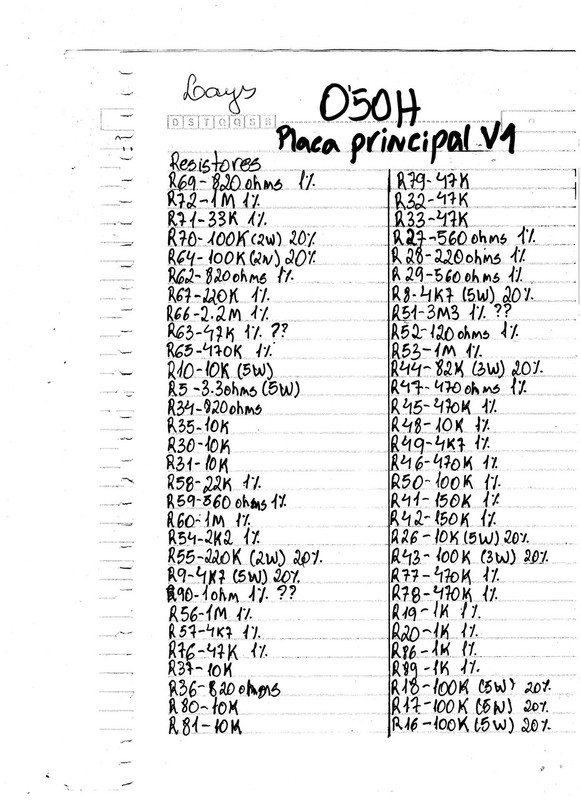 Lays
050H
D S T Q Q S S
Placa principal V1
Resistores
R69-820 ohms 1%
R72-1M 1%
R71-33K 1%
R70-100K (2W) 20%
R64-100K (2W) 20%
R62-820 ohms 1%
R67-220K 1%
R66-2.2M 1%
R63-47K 1% ??
R65-470K 1%
R10-10K (5W)
R5-3.3ohms (5W)
R34-820ohms
R35-10K
R30-10K
R31-10K
R58-22K 1%
R59-560 ohms 1%
R60-1M 1%
R54-2K2 1%
R55-220K (2W) 20%
R9-4K7 (5W) 20%
R90-1ohm 1% ??
R56-1M 1%
R57-4K7 1%
R76-47K 1%
R37-10K
R36-820 ohms
R80-10K
R81-10K
R79-47K
R32-47K
R33-47K
R27-560 ohms 1%
R28-220 ohms 1%
R29-560 ohms 1%
R8-4K7 (5W) 20%
R51-3M3 1% ??
R52-120 ohms 1%
R53-1M 1%
R44-82K (3W) 20%
R47-470 ohms 1%
R45-470K 1%
R48-10K 1%
R49-4K7 1%
R46-470K 1%
R50-100K 1%
R41-150K 1%
R42-150K 1%
R26-10K (5W) 20%
R43-100K (3W) 20%
R77-470K 1%
R78-470K 1%
R19-1K 1%
R20-1K 1%
R86-1K 1%
R89-1K 1%
R18-100K (5W) 20%
R17-100K (5W) 20%
R16-100K (5W) 20%